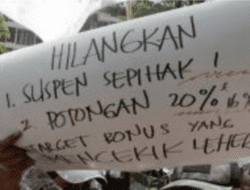 HILANGKAN
1. SUSPEN SEPIHAK !
2. POTONGAN 20% &
TARGET BONUS YANG
MENCEKIK LEHER